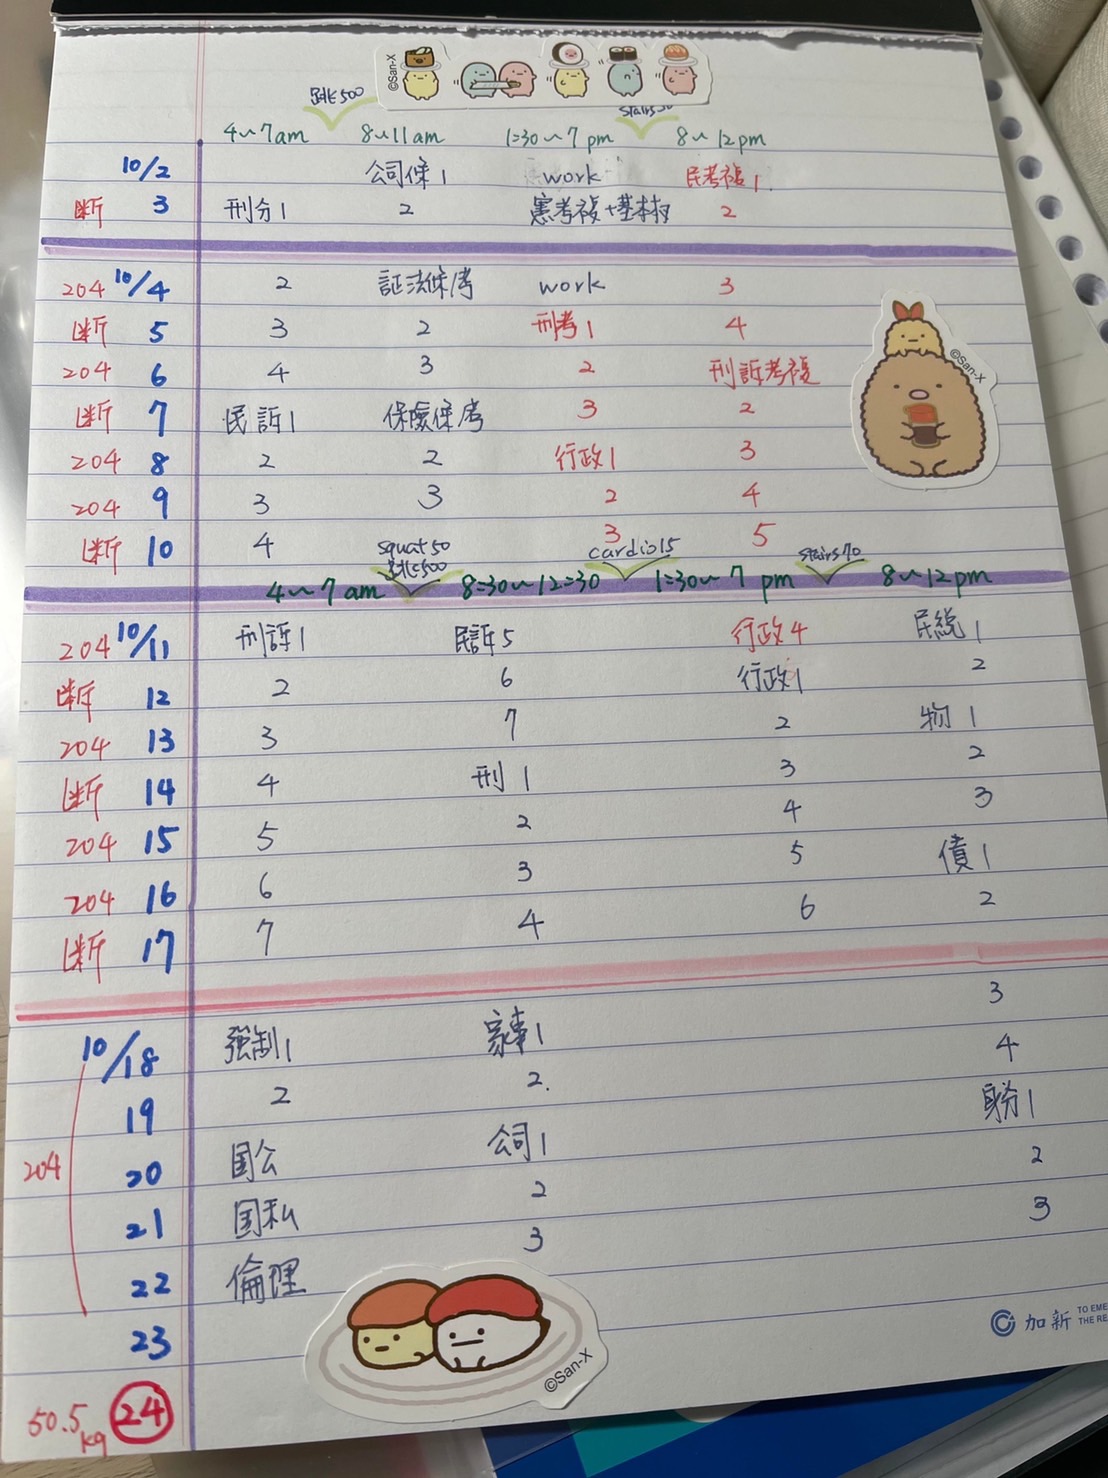 ©San-X
跳500 stairs
4~7am 8~11am 1:30~7 pm 8~12pm
10/2 公司條1 work 民考複1.
斷 3 刑分1 2 憲考複+基本权 2
204 10/4 2 証法條考 work 3
斷 5 3 2 刑考1 4
204 6 4 3 2 刑訴考複
©San-X
斷 7 民訴1 保險條考 3 2
204 8 2 2 行政1 3
204 9 3 3 2 4
斷 10 4 3 5
squat50 cardio15 stairs70
跳500
4~7am 8:30~12:30 1:30~7 pm 8~12pm
204 10/11 刑訴1 民訴5 行政4 民総1
斷 12 2 6 行政1 2
204 13 3 7 2 物1
斷 14 4 刑1 3 2
204 15 5 2 4 3
204 16 6 3 5 債1
斷 17 7 4 6 2
3
10/18 強制1 家事1 4
19 2 2. 身分1
204 20 国公 公司1 2
21 国私 2 3
22 倫理 3
加新 TO EME
THE RE
23
©San-X
50.5kg 24